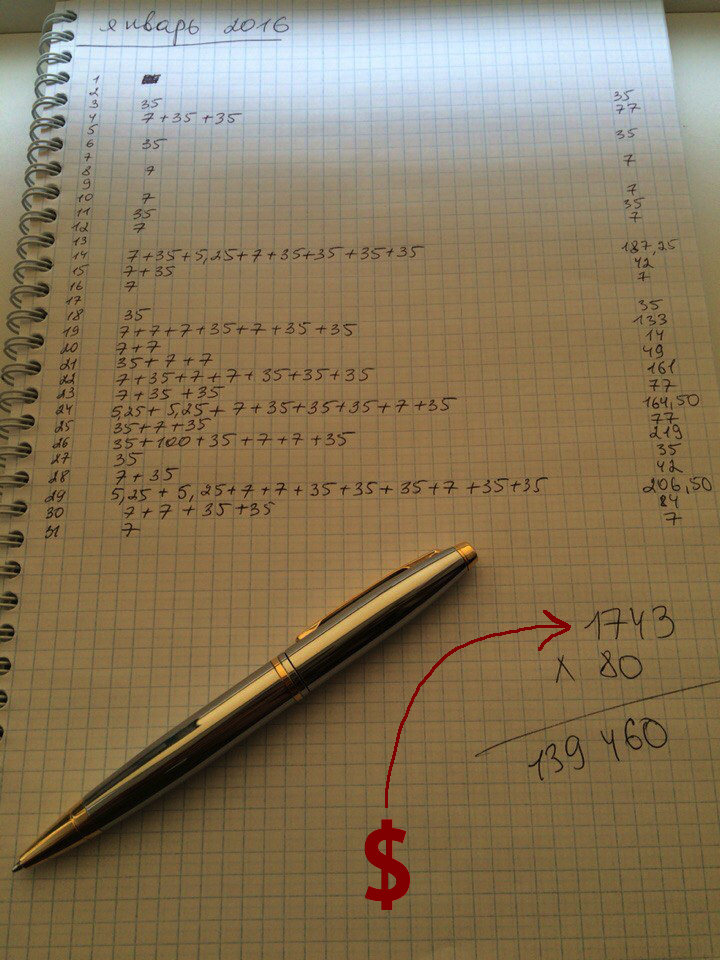 январь 2016
1
2
3 35 35
4 7+35+35 77
5
6 35 35
7
8 7 7
9
10 7 7
11 35 35
12 7 7
13
14 7+35+5,25+7+35+35+35+35 187,25
15 7+35 42
16 7 7
17
18 35 35
19 7+7+7+35+7+35+35 133
20 7+7 14
21 35+7+7 49
22 7+35+7+7+35+35+35 161
23 7+35+35 77
24 5,25+5,25+7+35+35+35+7+35 164,50
25 35+7+35 77
26 35+100+35+7+7+35 219
27 35 35
28 7+35 42
29 5,25+5,25+7+7+35+35+35+7+35+35 206,50
30 7+7+35+35 84
31 7 7
1743
x 80
139 460
$